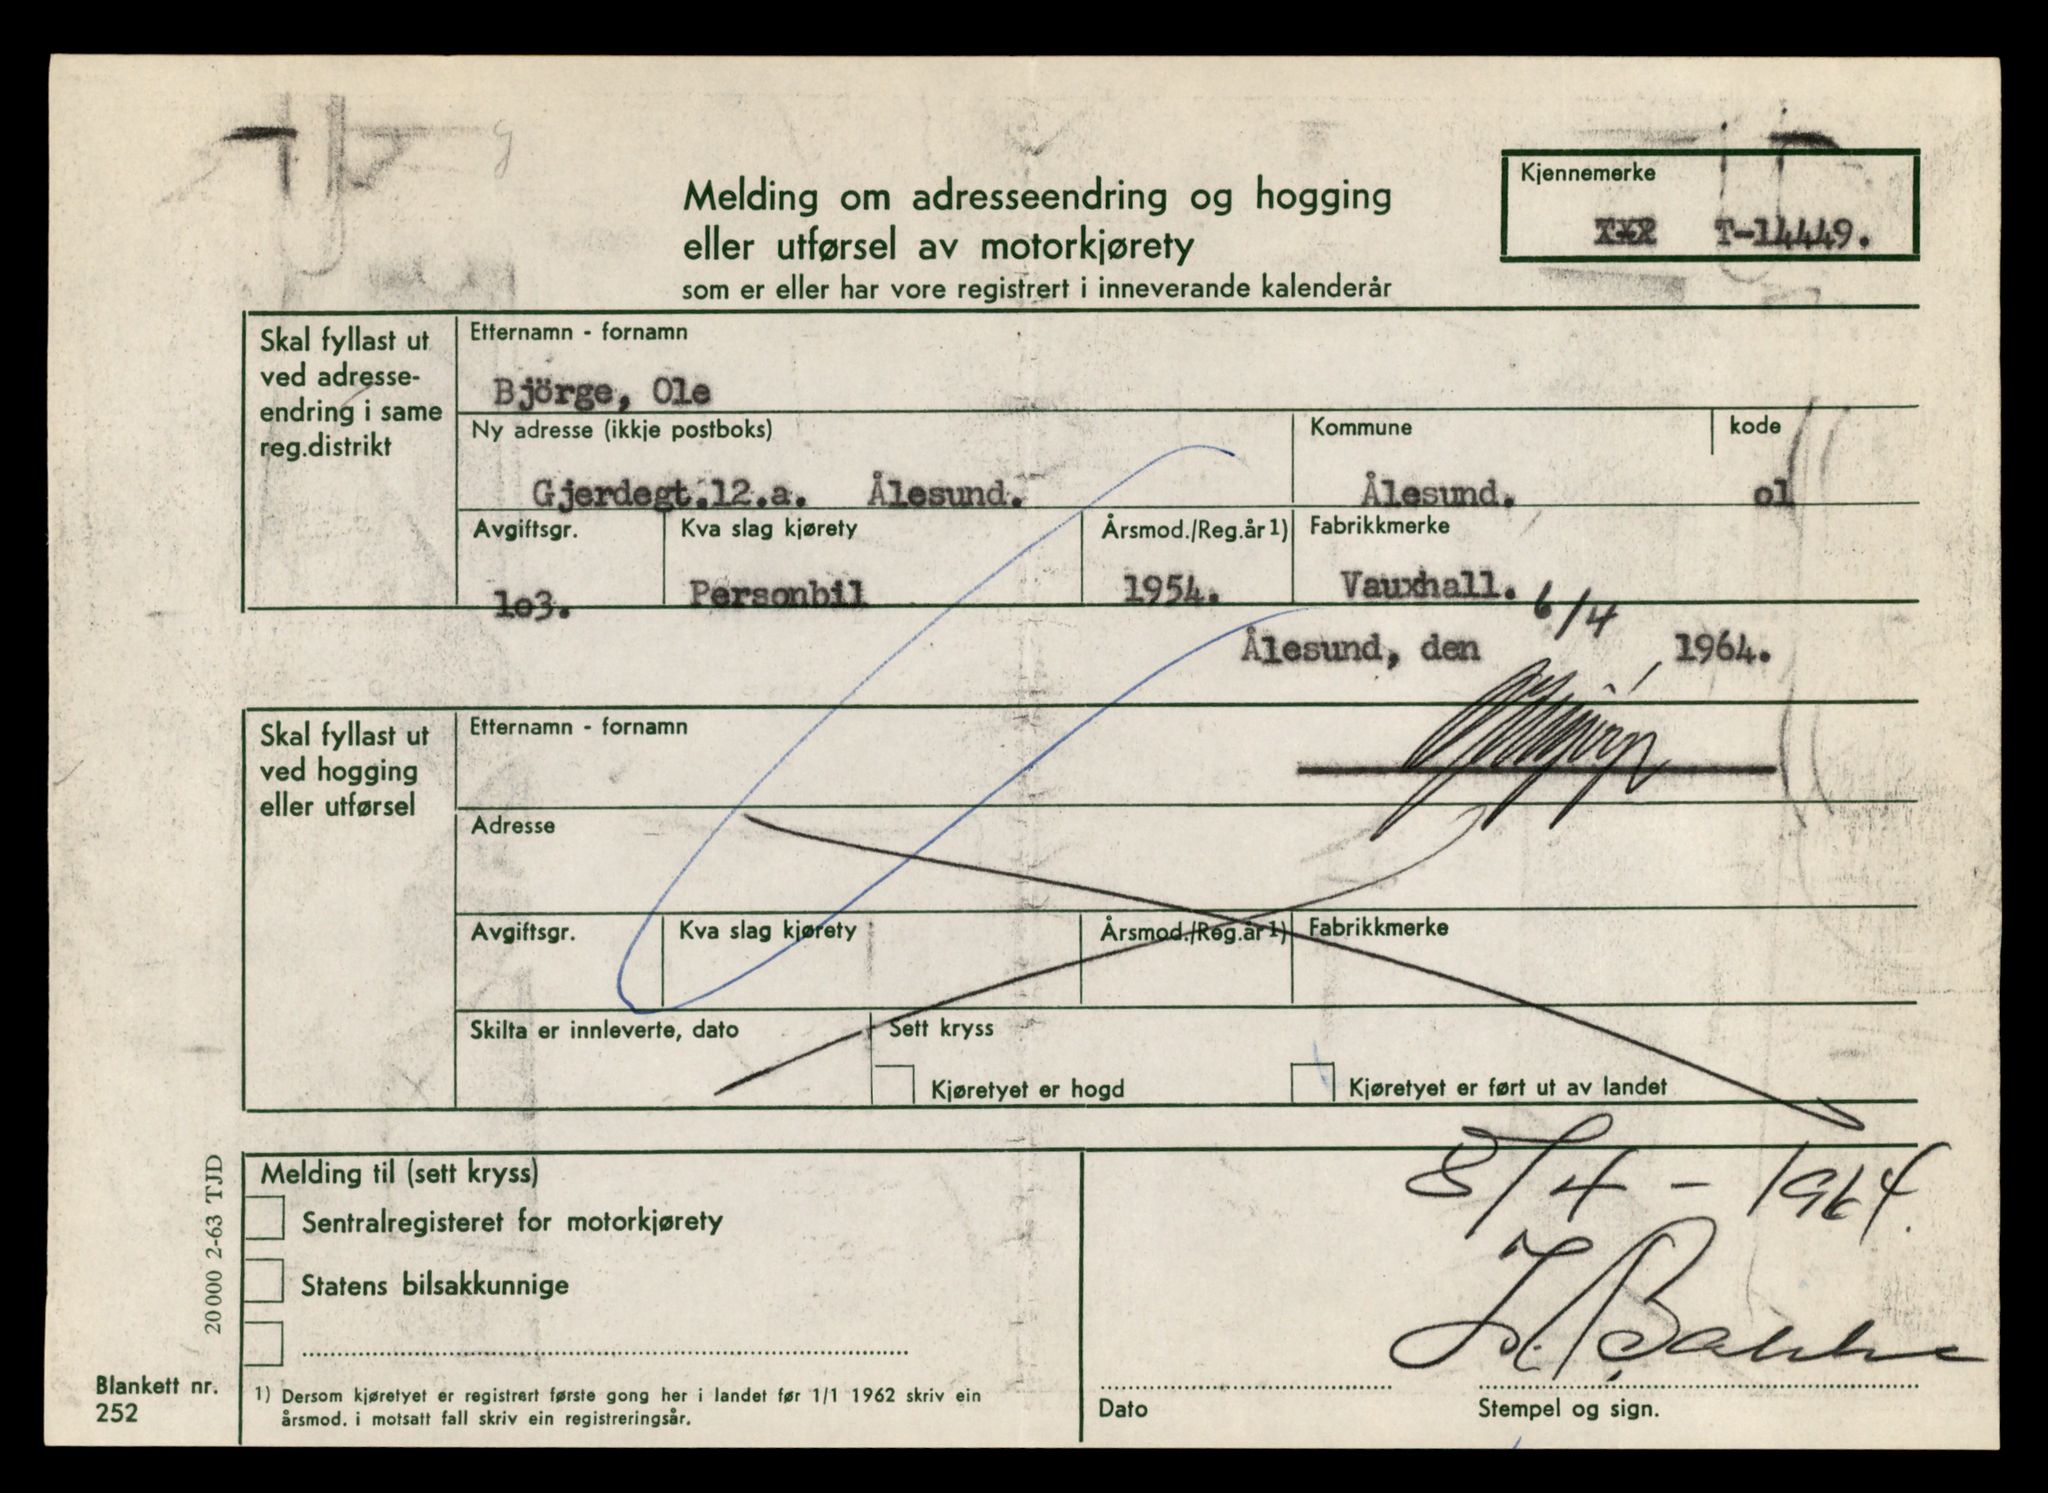 Melding om adresseendring og hogging
eller utførsel av motorkjørety
som er eller har vore registrert i inneverande kalenderår
Kjennemerke
T-14449.
Skal fyllast ut
ved adresse-
endring i same
reg.distrikt
Etternamn - fornamn
Björge, Ole
Ny adresse (ikkje postboks) Kommune kode
Gjerdegt.12.a. Ålesund. Ålesund. o1
Avgiftsgr. Kva slag kjørety Årsmod./Reg.år 1) Fabrikkmerke
1o3. Personbil 1954. Vauxhall.
Ålesund, den 6/4 1964.
Skal fyllast ut
ved hogging
eller utførsel
Etternamn - fornamn
Adresse
Avgiftsgr. Kva slag kjørety Årsmod./Reg.år 1) Fabrikkmerke
Skilta er innleverte, dato Sett kryss
Kjøretyet er hogd Kjøretyet er ført ut av landet
Melding til (sett kryss)
Sentralregisteret for motorkjørety
Statens bilsakkunnige
8/4 - 1964.
Bakke
Dato Stempel og sign.
1) Dersom kjøretyet er registrert første gong her i landet før 1/1 1962 skriv ein
årsmod. i motsatt fall skriv ein registreringsår.
20 000 2-63 TJD
Blankett nr.
252